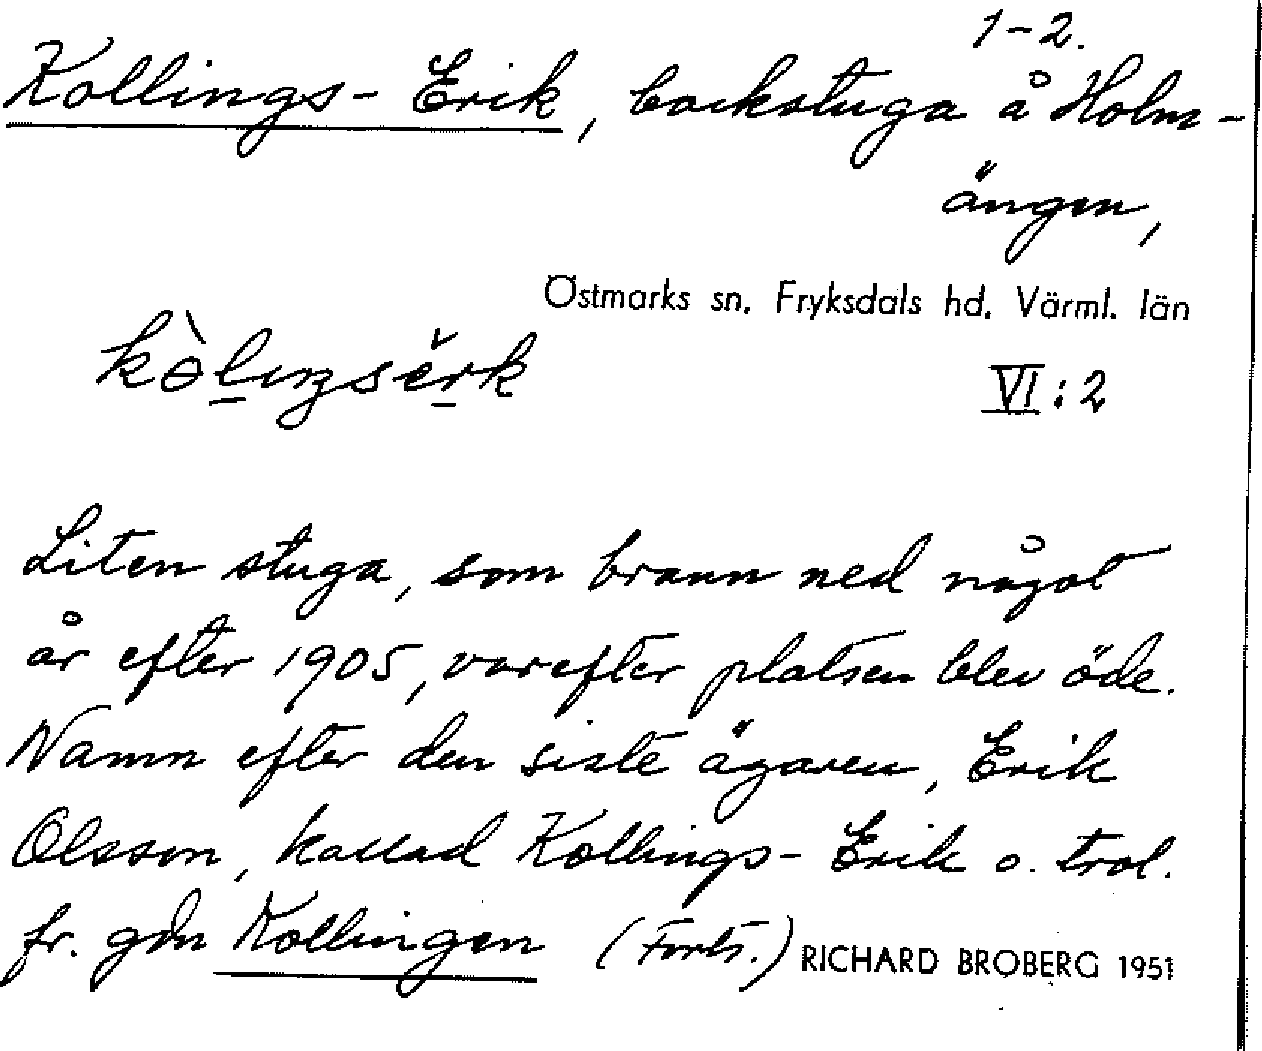 1-2.
Kollings-Erik, backstuga å Holm-
ängen,
Östmarks sn. Fryksdals hd. Värml. län
VI:2
Liten stuga, som brann ned något
år efter 1905, varefter platsen blev öde.
Namn efter den siste ägaren, Erik
Olsson, kallad Kollings-Erik o. trol.
fr. gdn Kollingen (Forts.) RICHARD BROBERG 1951